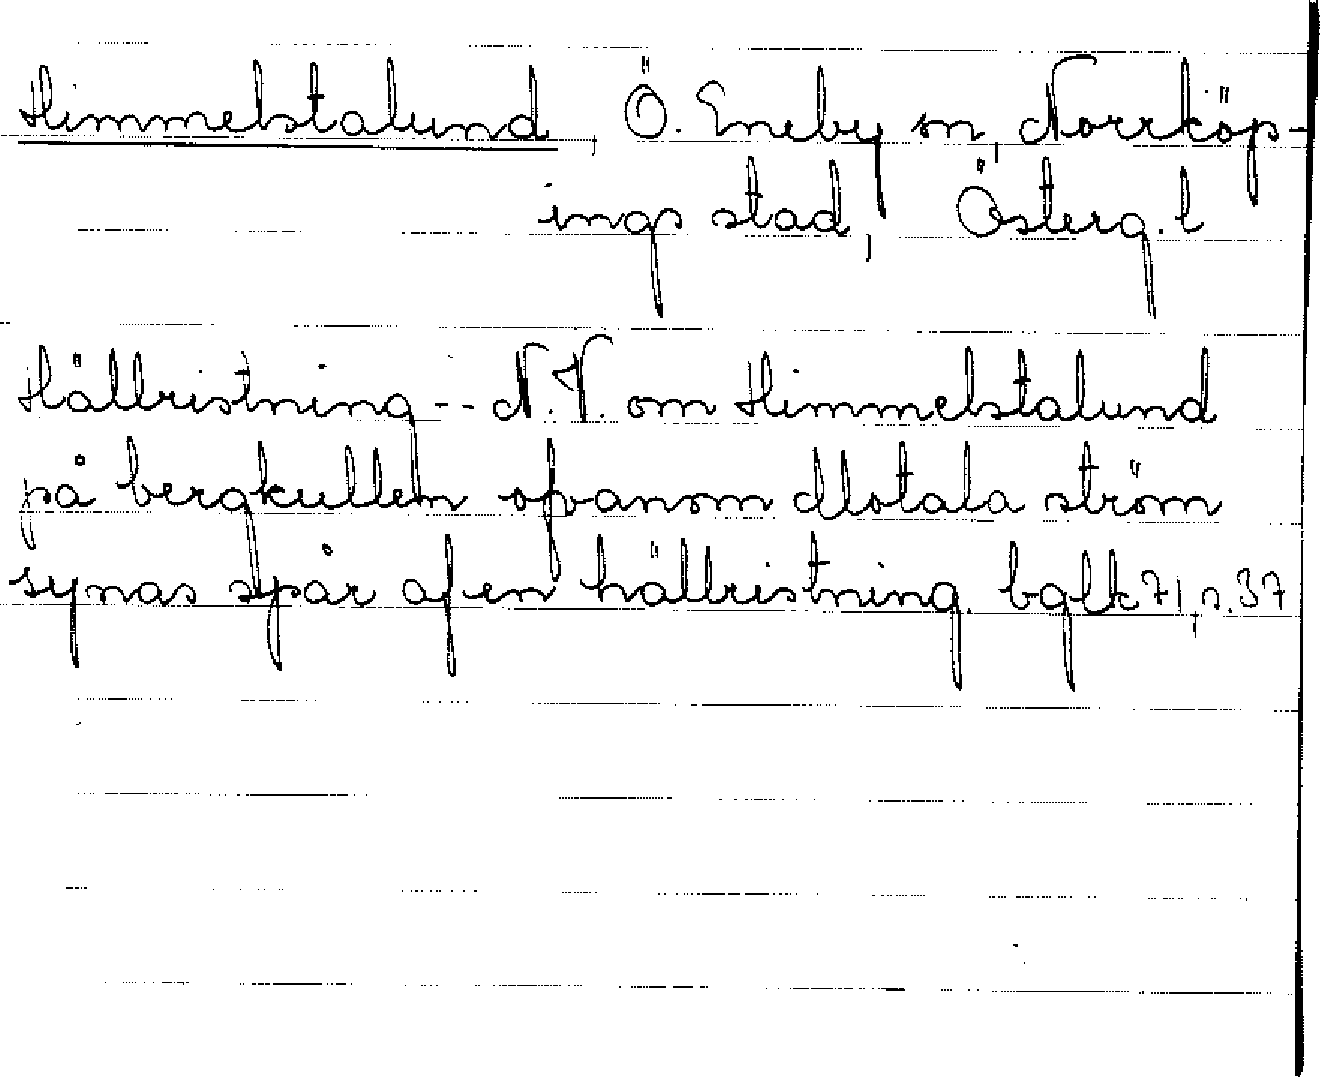 Himmelstalund, Ö. Eneby sn, Norrköp-
ings stad, Österg. l
Hällristning -- N.V. om Himmelstalund
på bergkullen ofvanom Motala ström
synas spår af en hällristning. bglk 71, s. 37